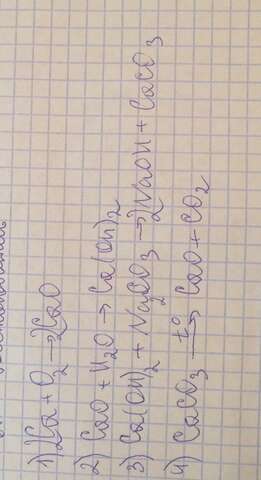 1) 2Ca + O₂ → 2CaO
2) CaO + H₂O → Ca(OH)₂
3) Ca(OH)₂ + Na₂CO₃ → 2NaOH + CaCO₃
4) CaCO₃ t° → CaO + CO₂